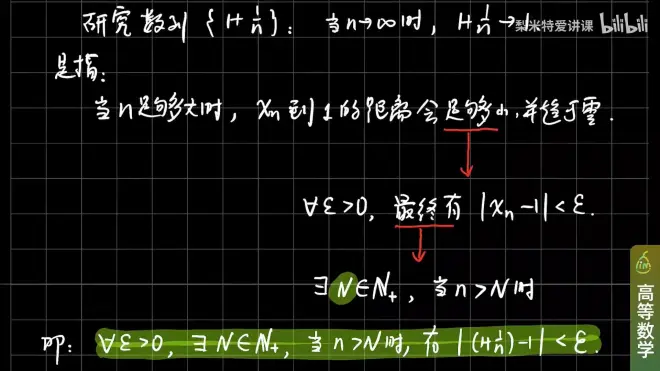 研究数列{1+1/n}: 当n→∞时, 1+1/n→1
梨米特爱讲课 bilibili
是指:
当n足够大时, xn到1的距离会足够小,并趋于零.
∀ε>0, 最终有 |xn-1|<ε.
∃N∈N+, 当n>N时
即: ∀ε>0, ∃N∈N+, 当n>N时, 有|(1+1/n)-1|<ε.
lim
高等数学